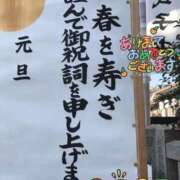 春を寿ぎ
謹んで御祝詞を申し上げま
元旦
あけまして
おめでとう
ございます